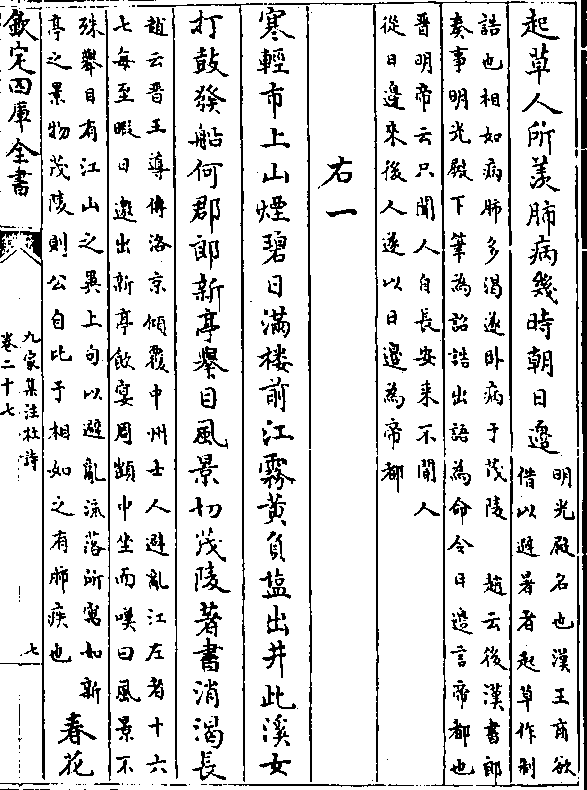 起草人所羨肺病幾時朝日邊
明光殿名也漢王商欲
借以避暑者起草作制
誥也相如病肺多渴遂卧病于茂陵 趙云後漢書郎
奏事明光殿下筆為詔誥出語為命令日邉言帝都也
晉明帝云只聞人自長安来不聞人
從日邊來後人遂以日邉為帝都
右一
寒輕市上山煙碧日滿楼前江霧黄負塩出井此溪女
打鼓發船何郡郎新亭舉目風景切茂陵著書消渴長
趙云晉王導傳洛京傾覆中州士人避亂江左者十六
七每至暇日邀出新亭飲宴周顗中坐而嘆曰風景不
殊舉目有江山之異上句以避亂流落所寓如新
亭之景物茂陵則公自比于相如之有肺疾也
春花
欽定四庫全書
九家集注杜詩
卷二十七
七